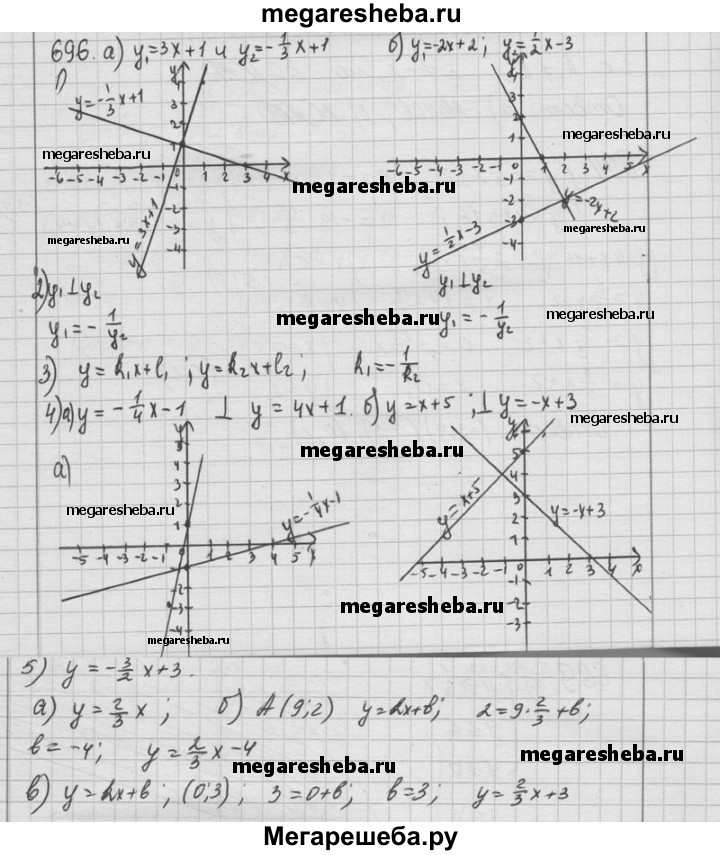 megaresheba.ru
696. а) y₁=3x+1 и y₂=-1/3 x+1
б) y₁=-2x+2; y₂=1/2 x-3
1)
y=-1/3 x+1
y
4
3
2
1
-6 -5 -4 -3 -2 -1 0 1 2 3 4 x
-1
-2
-3
-4
y=3x+1
megaresheba.ru
megaresheba.ru
megaresheba.ru
y
4
3
2
1
-6 -5 -4 -3 -2 -1 0 1 2 3 4 5 x
-1
-2
-3
-4
y=1/2 x-3
y=-2x+2
megaresheba.ru
megaresheba.ru
2) y₁⊥y₂
y₁=-1/y₂
y₁⊥y₂
y₁=-1/y₂
megaresheba.ru
megaresheba.ru
3) y=k₁x+l₁; y=k₂x+l₂; k₁=-1/k₂
4) а) y=-1/4 x-1 ⊥ y=4x+1. б) y=x+5; ⊥ y=-x+3
megaresheba.ru
а)
y
5
4
3
2
1
-5 -4 -3 -2 -1 0 1 2 3 4 5 x
-1
-2
-3
-4
y=-1/4 x-1
megaresheba.ru
megaresheba.ru
y
5
4
3
2
1
-5 -4 -3 -2 -1 0 1 2 3 4 x
-1
-2
-3
y=x+5
y=-x+3
megaresheba.ru
megaresheba.ru
5) y=-3/2 x+3.
а) y=2/3 x; б) A(9;2) y=kx+b; 2=9·2/3+b;
b=-4; y=2/3 x-4
megaresheba.ru
megaresheba.ru
в) y=kx+b; (0;3); 3=0+b; b=3; y=2/3 x+3
Мегарешеба.ру